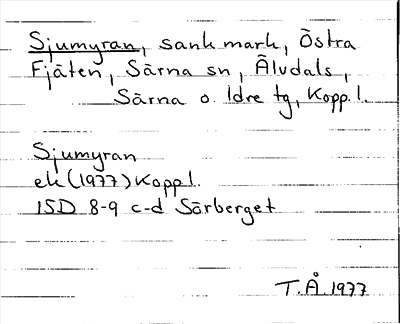 Sjumyran, sank mark, Östra
Fjäten, Särna sn, Älvdals,
Särna o. Idre tg, Kopp.l.
Sjumyran
ek (1977) Kopp l.
15D 8-9 c-d Sörberget
T.Å. 1977